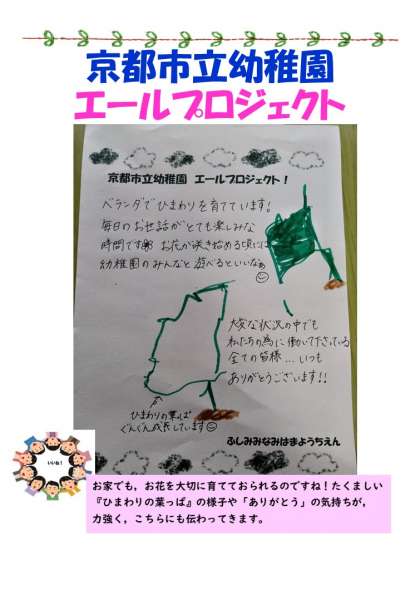 京都市立幼稚園
エールプロジェクト
京都市立幼稚園 エールプロジェクト！
ベランダでひまわりを育てています!
毎日のお世話がとても楽しみな
時間です お花が咲き始める頃には
幼稚園のみんなと遊べるといいなぁ
大変な状況の中でも
私たちの為に働いて下さっている
全ての皆様…いつも
ありがとうございます!!
ひまわりの葉っぱ
ぐんぐん成長しています
ふしみみなみはまようちえん
いいね！
お家でも，お花を大切に育てておられるのですね！たくましい
『ひまわりの葉っぱ』の様子や「ありがとう」の気持ちが，
力強く，こちらにも伝わってきます。